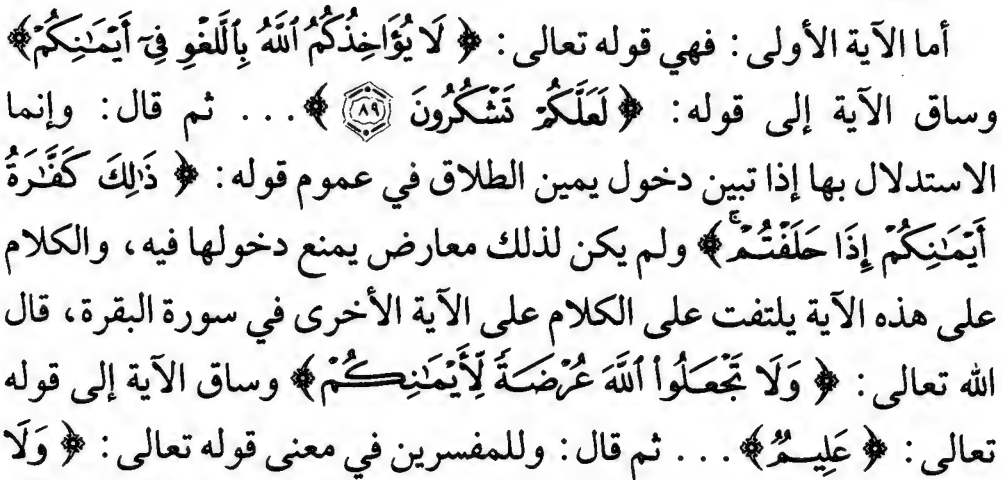 أما الآية الأولى : فهي قوله تعالى : ﴿ لَا يُؤَاخِذُكُمُ ٱللَّهُ بِٱللَّغْوِ فِىٓ أَيْمَـٰنِكُمْ ﴾
وساق الآية إلى قوله : ﴿ لَعَلَّكُمْ تَشْكُرُونَ ﴿٨٩﴾ ﴾ . . . ثم قال : وإنما
الاستدلال بها إذا تبين دخول يمين الطلاق في عموم قوله : ﴿ ذَٰلِكَ كَفَّـٰرَةُ
أَيْمَـٰنِكُمْ إِذَا حَلَفْتُمْ ۚ ﴾ ولم يكن لذلك معارض يمنع دخولها فيه ، والكلام
على هذه الآية يلتفت على الكلام على الآية الأخرى في سورة البقرة ، قال
الله تعالى : ﴿ وَلَا تَجْعَلُوا۟ ٱللَّهَ عُرْضَةً لِّأَيْمَـٰنِكُمْ ﴾ وساق الآية إلى قوله
تعالى : ﴿ عَلِيمٌ ﴾ . . . ثم قال : وللمفسرين في معنى قوله تعالى : ﴿ وَلَا